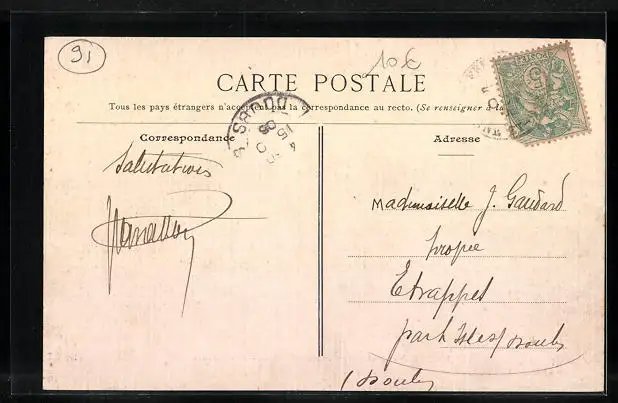 91
10€
CARTE POSTALE
Tous les pays étrangers n'acceptent pas la correspondance au recto. (Se renseigner à la
Correspondance
Adresse
Salutations
Mademoiselle J. Gaudard
Etrappes
par Isles/Doubs
(Doubs)